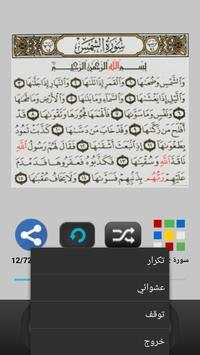 سُورَةُ الشَّمْسِ
بِسْمِ اللَّهِ الرَّحْمَٰنِ الرَّحِيمِ
وَالشَّمْسِ وَضُحَىٰهَا ١ وَالْقَمَرِ إِذَا تَلَىٰهَا ٢ وَالنَّهَارِ إِذَا جَلَّىٰهَا
٣ وَاللَّيْلِ إِذَا يَغْشَىٰهَا ٤ وَالسَّمَاءِ وَمَا بَنَىٰهَا ٥ وَالْأَرْضِ وَمَا طَحَىٰهَا
٦ وَنَفْسٍ وَمَا سَوَّىٰهَا ٧ فَأَلْهَمَهَا فُجُورَهَا وَتَقْوَىٰهَا ٨ قَدْ أَفْلَحَ مَن زَكَّىٰهَا
٩ وَقَدْ خَابَ مَن دَسَّىٰهَا ١٠ كَذَّبَتْ ثَمُودُ بِطَغْوَىٰهَا ١١ إِذِ انبَعَثَ أَشْقَىٰهَا
١٢ فَقَالَ لَهُمْ رَسُولُ اللَّهِ نَاقَةَ اللَّهِ وَسُقْيَىٰهَا ١٣ فَكَذَّبُوهُ فَعَقَرُوهَا
فَدَمْدَمَ عَلَيْهِمْ رَبُّهُم بِذَنبِهِمْ فَسَوَّىٰهَا ١٤ وَلَا يَخَافُ عُقْبَىٰهَا ١٥
سورة
12/72
تكرار
عشوائي
توقف
خروج